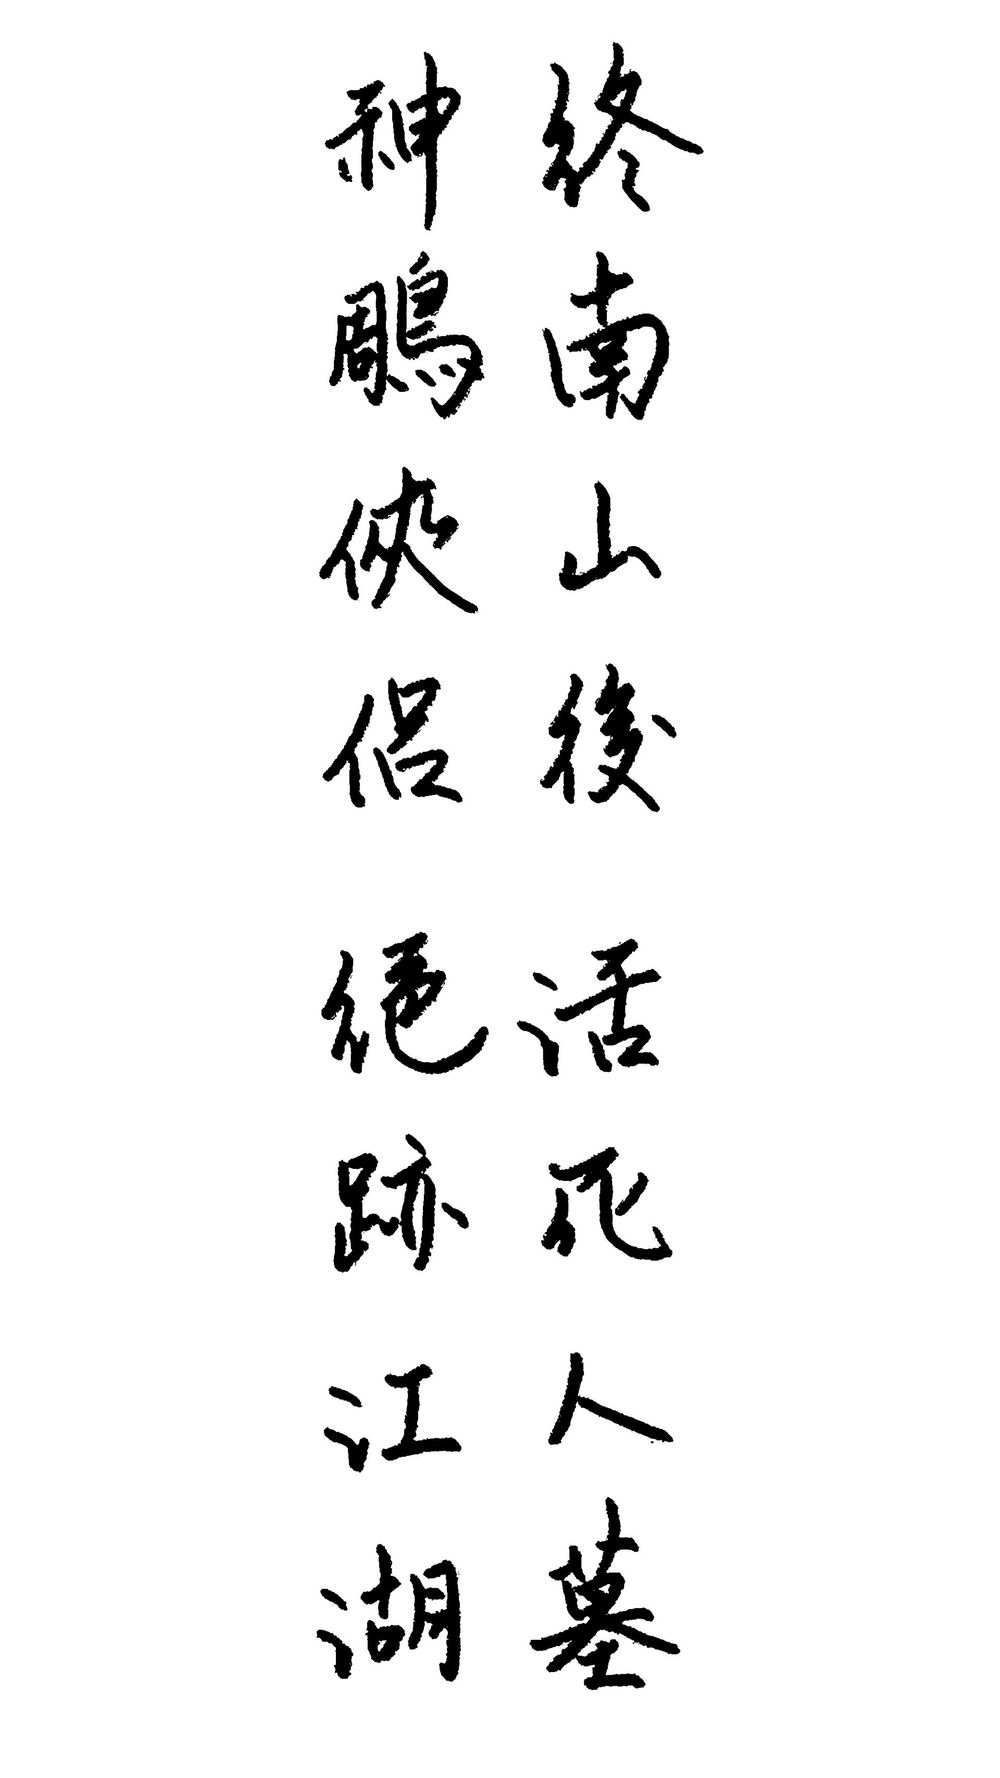 終南山後 活死人墓
神鵰俠侶 絕跡江湖